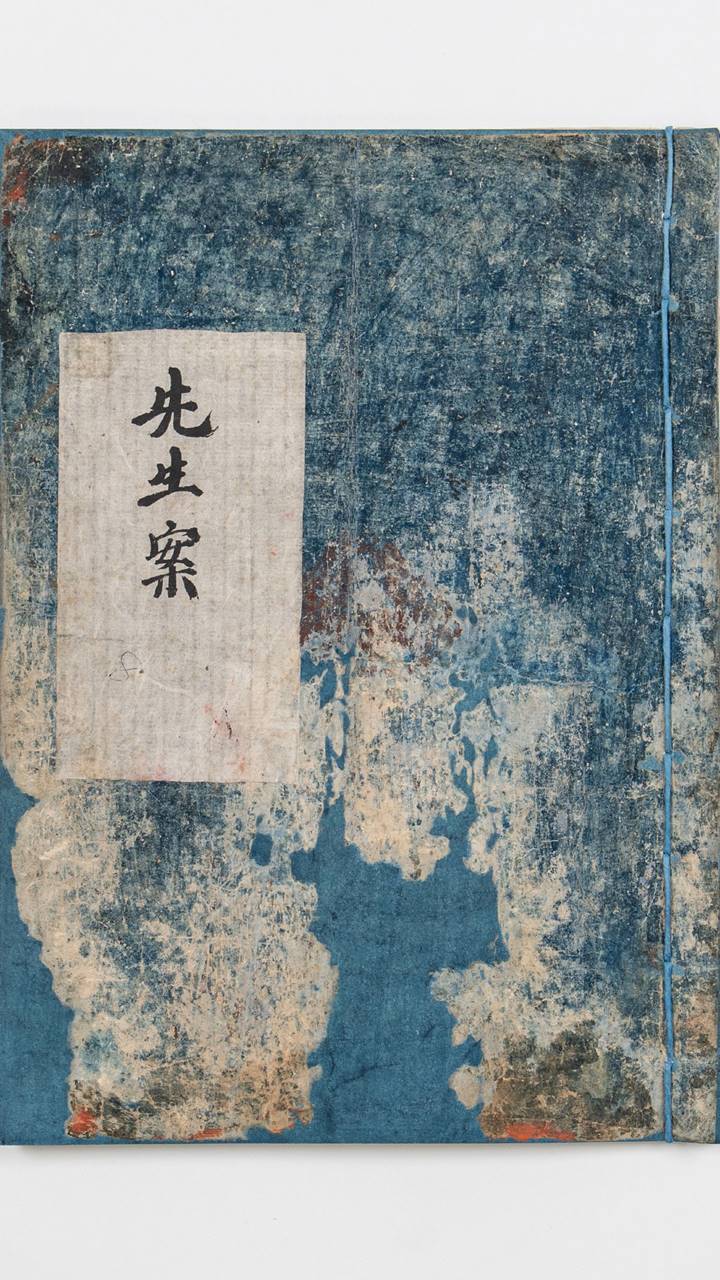 先生案